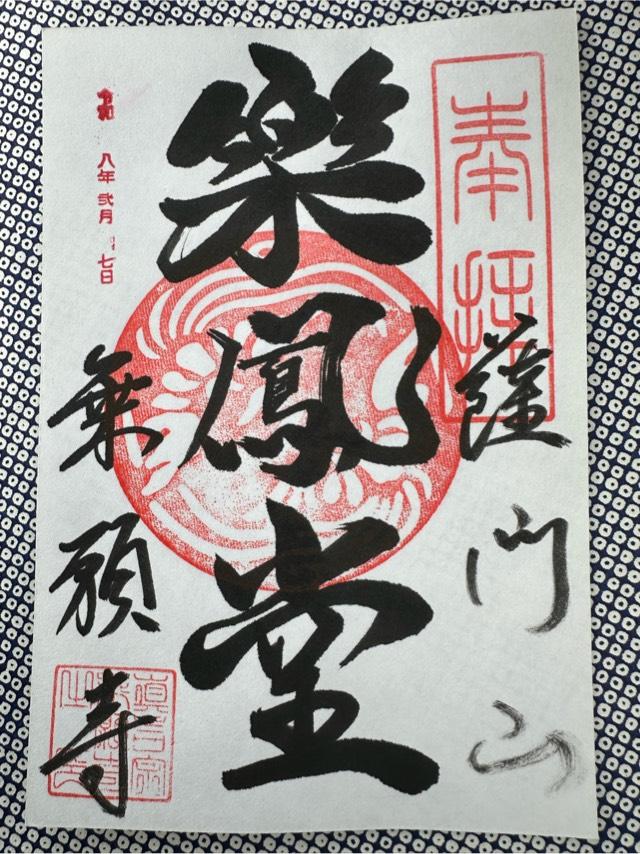 奉拝
薩門山
樂鳳堂
令和八年弐月七日
乗願寺